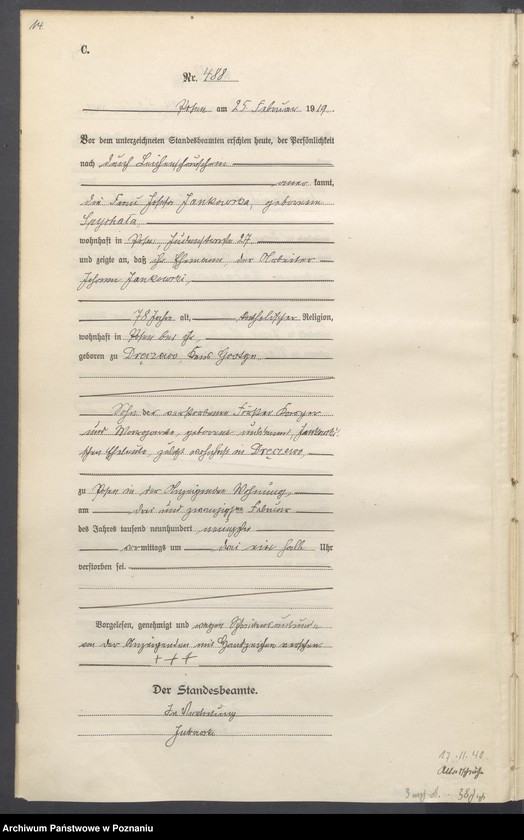 14.
C.
Nr. 488
Posen am 25 Februar 1919.
Vor dem unterzeichneten Standesbeamten erschien heute, der Persönlichkeit
nach durch Leichenschauschein
aner kannt,
die Frau Josefa Jankowska, geborene
Spychała,
wohnhaft in Posen, Judenstraße 27
und zeigte an, daß ihr Ehemann, der Arbeiter
Johann Jankowski,
78 Jahre alt, katholischer Religion,
wohnhaft in Posen bei ihr,
geboren zu Dręczewo Kreis Gostyn
Sohn der verstorbenen Förster Kasper
und Margareta, geborene unbekannt, Jankowski-
schen Eheleute, zuletzt wohnhaft in Dręczewo,
zu Posen in der Anzeigenden Wohnung,
am drei und zwanzigsten Februar
des Jahres tausend neunhundert neunzehn
vormittags um drei ein halb Uhr
verstorben sei.
Vorgelesen, genehmigt und wegen Schreibensunkunde
von der Anzeigenden mit Handzeichen versehen
+ + +
Der Standesbeamte.
In Vertretung
17.11.40
Archiwum Państwowe w Poznaniu